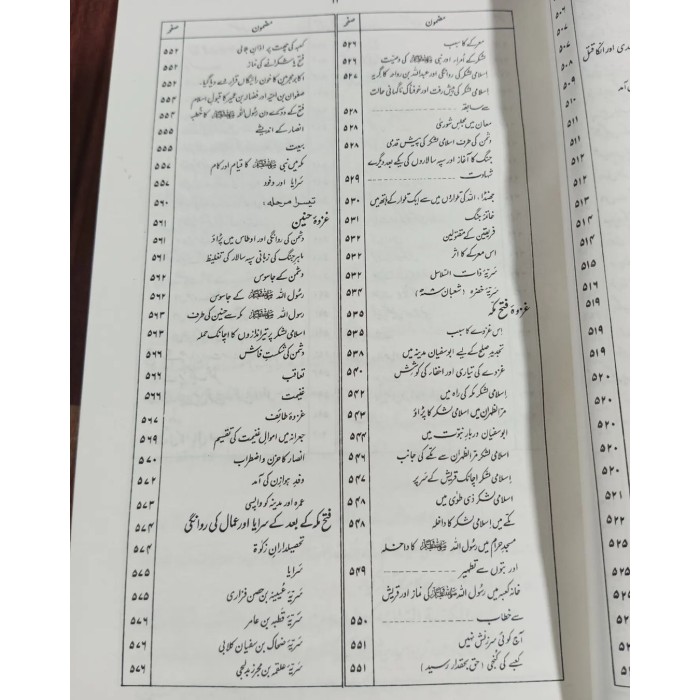 صفحہ
مضمون
معرکے کا سبب ۵۲۶
لشکر کے اُمراء اور نبی ﷺ کی وصیت ۵۲۶
اسلامی لشکر کی روانگی اور عبداللہ بن رواحہ کا گریہ ۵۲۷
اسلامی لشکر کی پیش رفت اور خوفناک ناگہانی حالت
سے سابقہ ۵۲۸
معان میں مجلس شوریٰ ۵۲۸
دشمن کی طرف اسلامی لشکر کی پیش قدمی ۵۲۸
جنگ کا آغاز اور سپہ سالاروں کی یکے بعد دیگرے
شہادت ۵۲۹
جھنڈا، اللہ کی تلواروں میں سے ایک تلوار کے ہاتھ میں ۵۳۰
خاتمۂ جنگ ۵۳۱
فریقین کے مقتولین ۵۳۲
اس معرکے کا اثر ۵۳۲
سریۂ ذات السلاسل ۵۳۲
سریۂ خضرہ (شعبان ۸ھ) ۵۳۴
غزوۂ فتح مکہ ۵۳۵
اس غزوے کا سبب
تجدیدِ صلح کے لیے ابو سفیان مدینہ میں ۵۳۸
غزوے کی تیاری اور اخفاء کی کوشش ۵۴۰
اسلامی لشکر مکہ کی راہ میں ۵۴۲
مرالظہران میں اسلامی لشکر کا پڑاؤ ۵۴۳
ابوسفیان دربارِ نبوت میں ۵۴۴
اسلامی لشکر مرالظہران سے مکے کی جانب ۵۴۶
اسلامی لشکر اچانک قریش کے سر پر ۵۴۷
اسلامی لشکر ذی طویٰ میں ۵۴۸
مکے میں اسلامی لشکر کا داخلہ ۵۴۸
مسجد حرام میں رسول اللہ ﷺ کا داخلہ
اور بتوں سے تطہیر ۵۴۹
خانہ کعبہ میں رسول اللہ ﷺ کی نماز اور قریش
سے خطاب ۵۵۰
آج کوئی سرزنش نہیں ۵۵۱
کعبے کی کنجی (حق بحقدار رسید) ۵۵۱
صفحہ
مضمون
کعبہ کی چھت پر اذانِ بلالی ۵۵۲
فتح یا شکرانے کی نماز ۵۵۲
اکابر مجرمین کا خون رائیگاں قرار دے دیا گیا۔ ۵۵۲
صفوان بن امیہ اور فضالہ بن عمیر کا قبولِ اسلام ۵۵۳
فتح کے دوسرے دن رسول اللہ ﷺ کا خطبہ ۵۵۴
انصار کے اندیشے ۵۵۵
بیعت ۵۵۵
مکہ میں نبی ﷺ کا قیام اور کام ۵۵۷
سرایا اور وفود ۵۵۷
تیسرا مرحلہ: ۵۶۰
غزوۂ حنین ۵۶۱
دشمن کی روانگی اور اوطاس میں پڑاؤ ۵۶۱
ماہرِ جنگ کی زبانی سپہ سالار کی تغلیط ۵۶۱
دشمن کے جاسوس ۵۶۲
رسول اللہ ﷺ کے جاسوس ۵۶۲
رسول اللہ ﷺ مکہ سے حنین کی طرف ۵۶۳
اسلامی لشکر پر تیر اندازوں کا اچانک حملہ ۵۶۳
دشمن کی شکستِ فاش ۵۶۶
تعاقب ۵۶۶
غنیمت ۵۶۶
غزوۂ طائف ۵۶۷
جعرانہ میں اموالِ غنیمت کی تقسیم ۵۶۹
انصار کا حزن و اضطراب ۵۷۰
وفدِ ہوازن کی آمد ۵۷۲
عمرہ اور مدینہ کو واپسی ۵۷۳
فتح مکہ کے بعد کے سرایا اور عمال کی روانگی ۵۷۴
تحصیلدارانِ زکوٰۃ ۵۷۴
سرایا ۵۷۵
سریۂ عیینہ بن حصن فزاری ۵۷۵
سریۂ قطبہ بن عامر ۵۷۶
سریۂ ضحاک بن سفیان کلابی ۵۷۶
سریۂ علقمہ بن مجزر مدلجی ۵۷۶